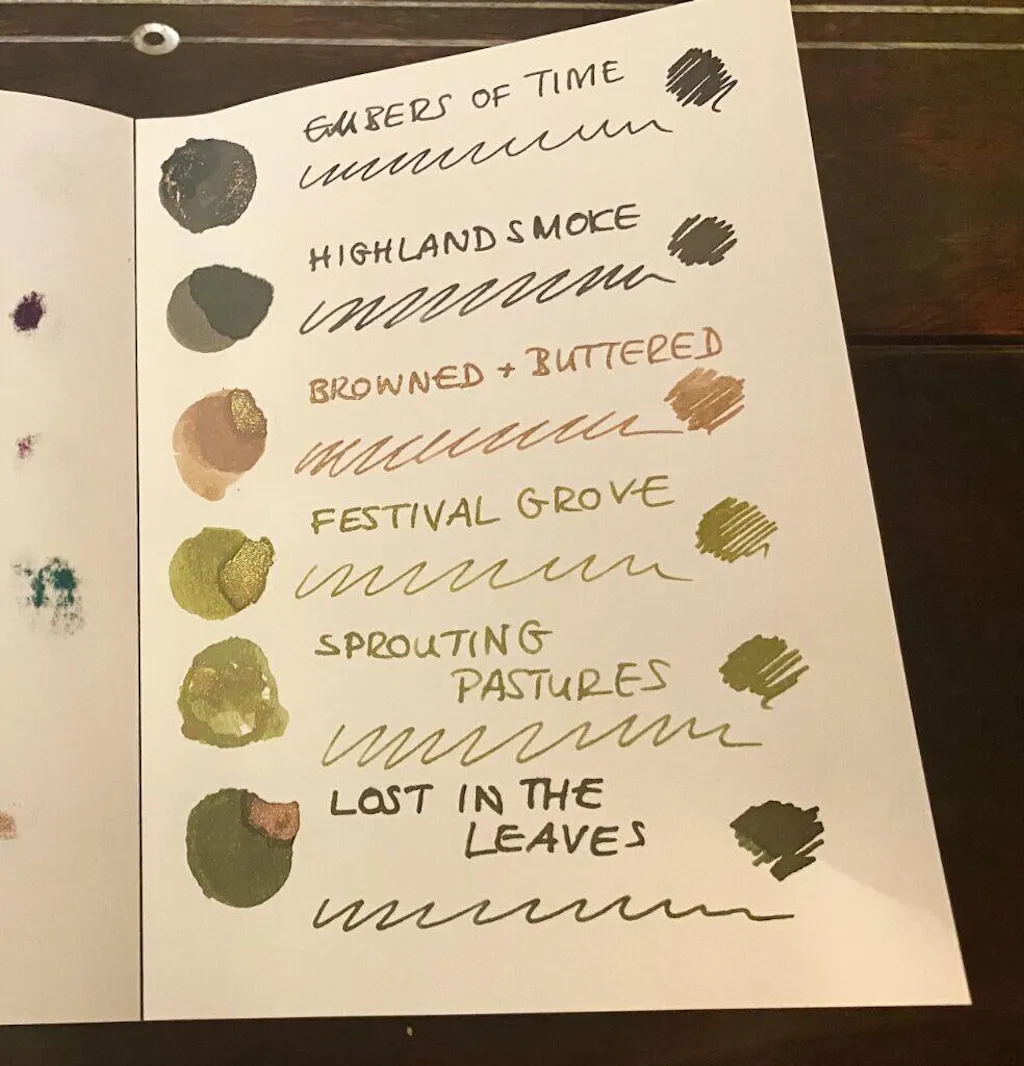 EMBERS OF TIME
HIGHLAND SMOKE
BROWNED + BUTTERED
FESTIVAL GROVE
SPROUTING
PASTURES
LOST IN THE
LEAVES